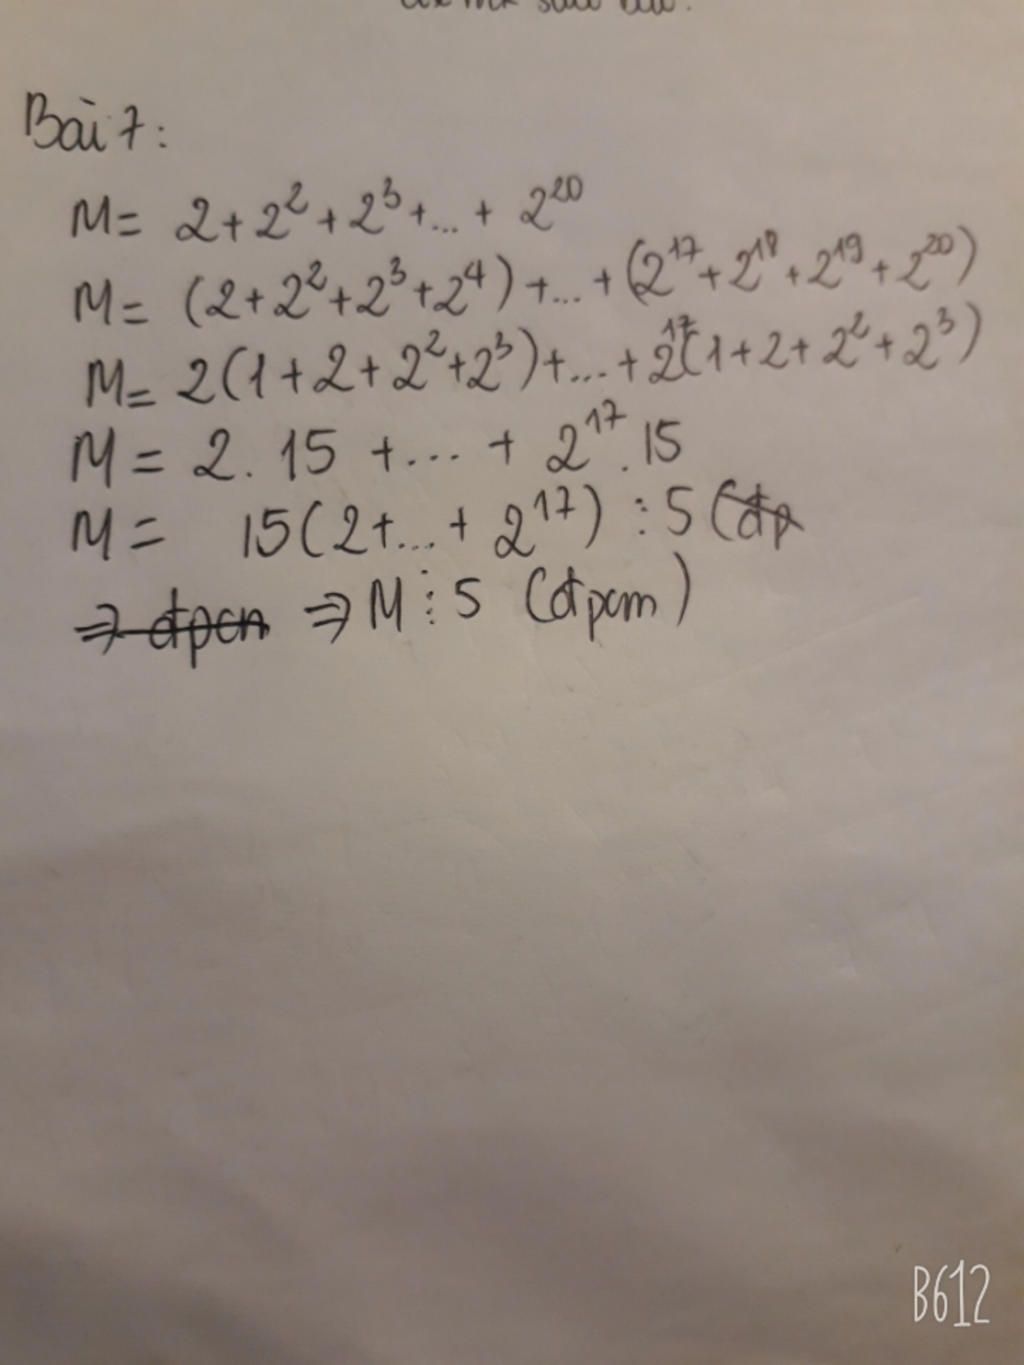 Bài 7:
M = 2 + 2² + 2³ + ... + 2²⁰
M = (2 + 2² + 2³ + 2⁴) + ... + (2¹⁷ + 2¹⁸ + 2¹⁹ + 2²⁰)
M = 2(1 + 2 + 2² + 2³) + ... + 2¹⁷(1 + 2 + 2² + 2³)
M = 2 . 15 + ... + 2¹⁷ . 15
M = 15(2 + ... + 2¹⁷) ⋮ 5 (đp
⇒ đpcm ⇒ M ⋮ 5 (đpcm)
B612